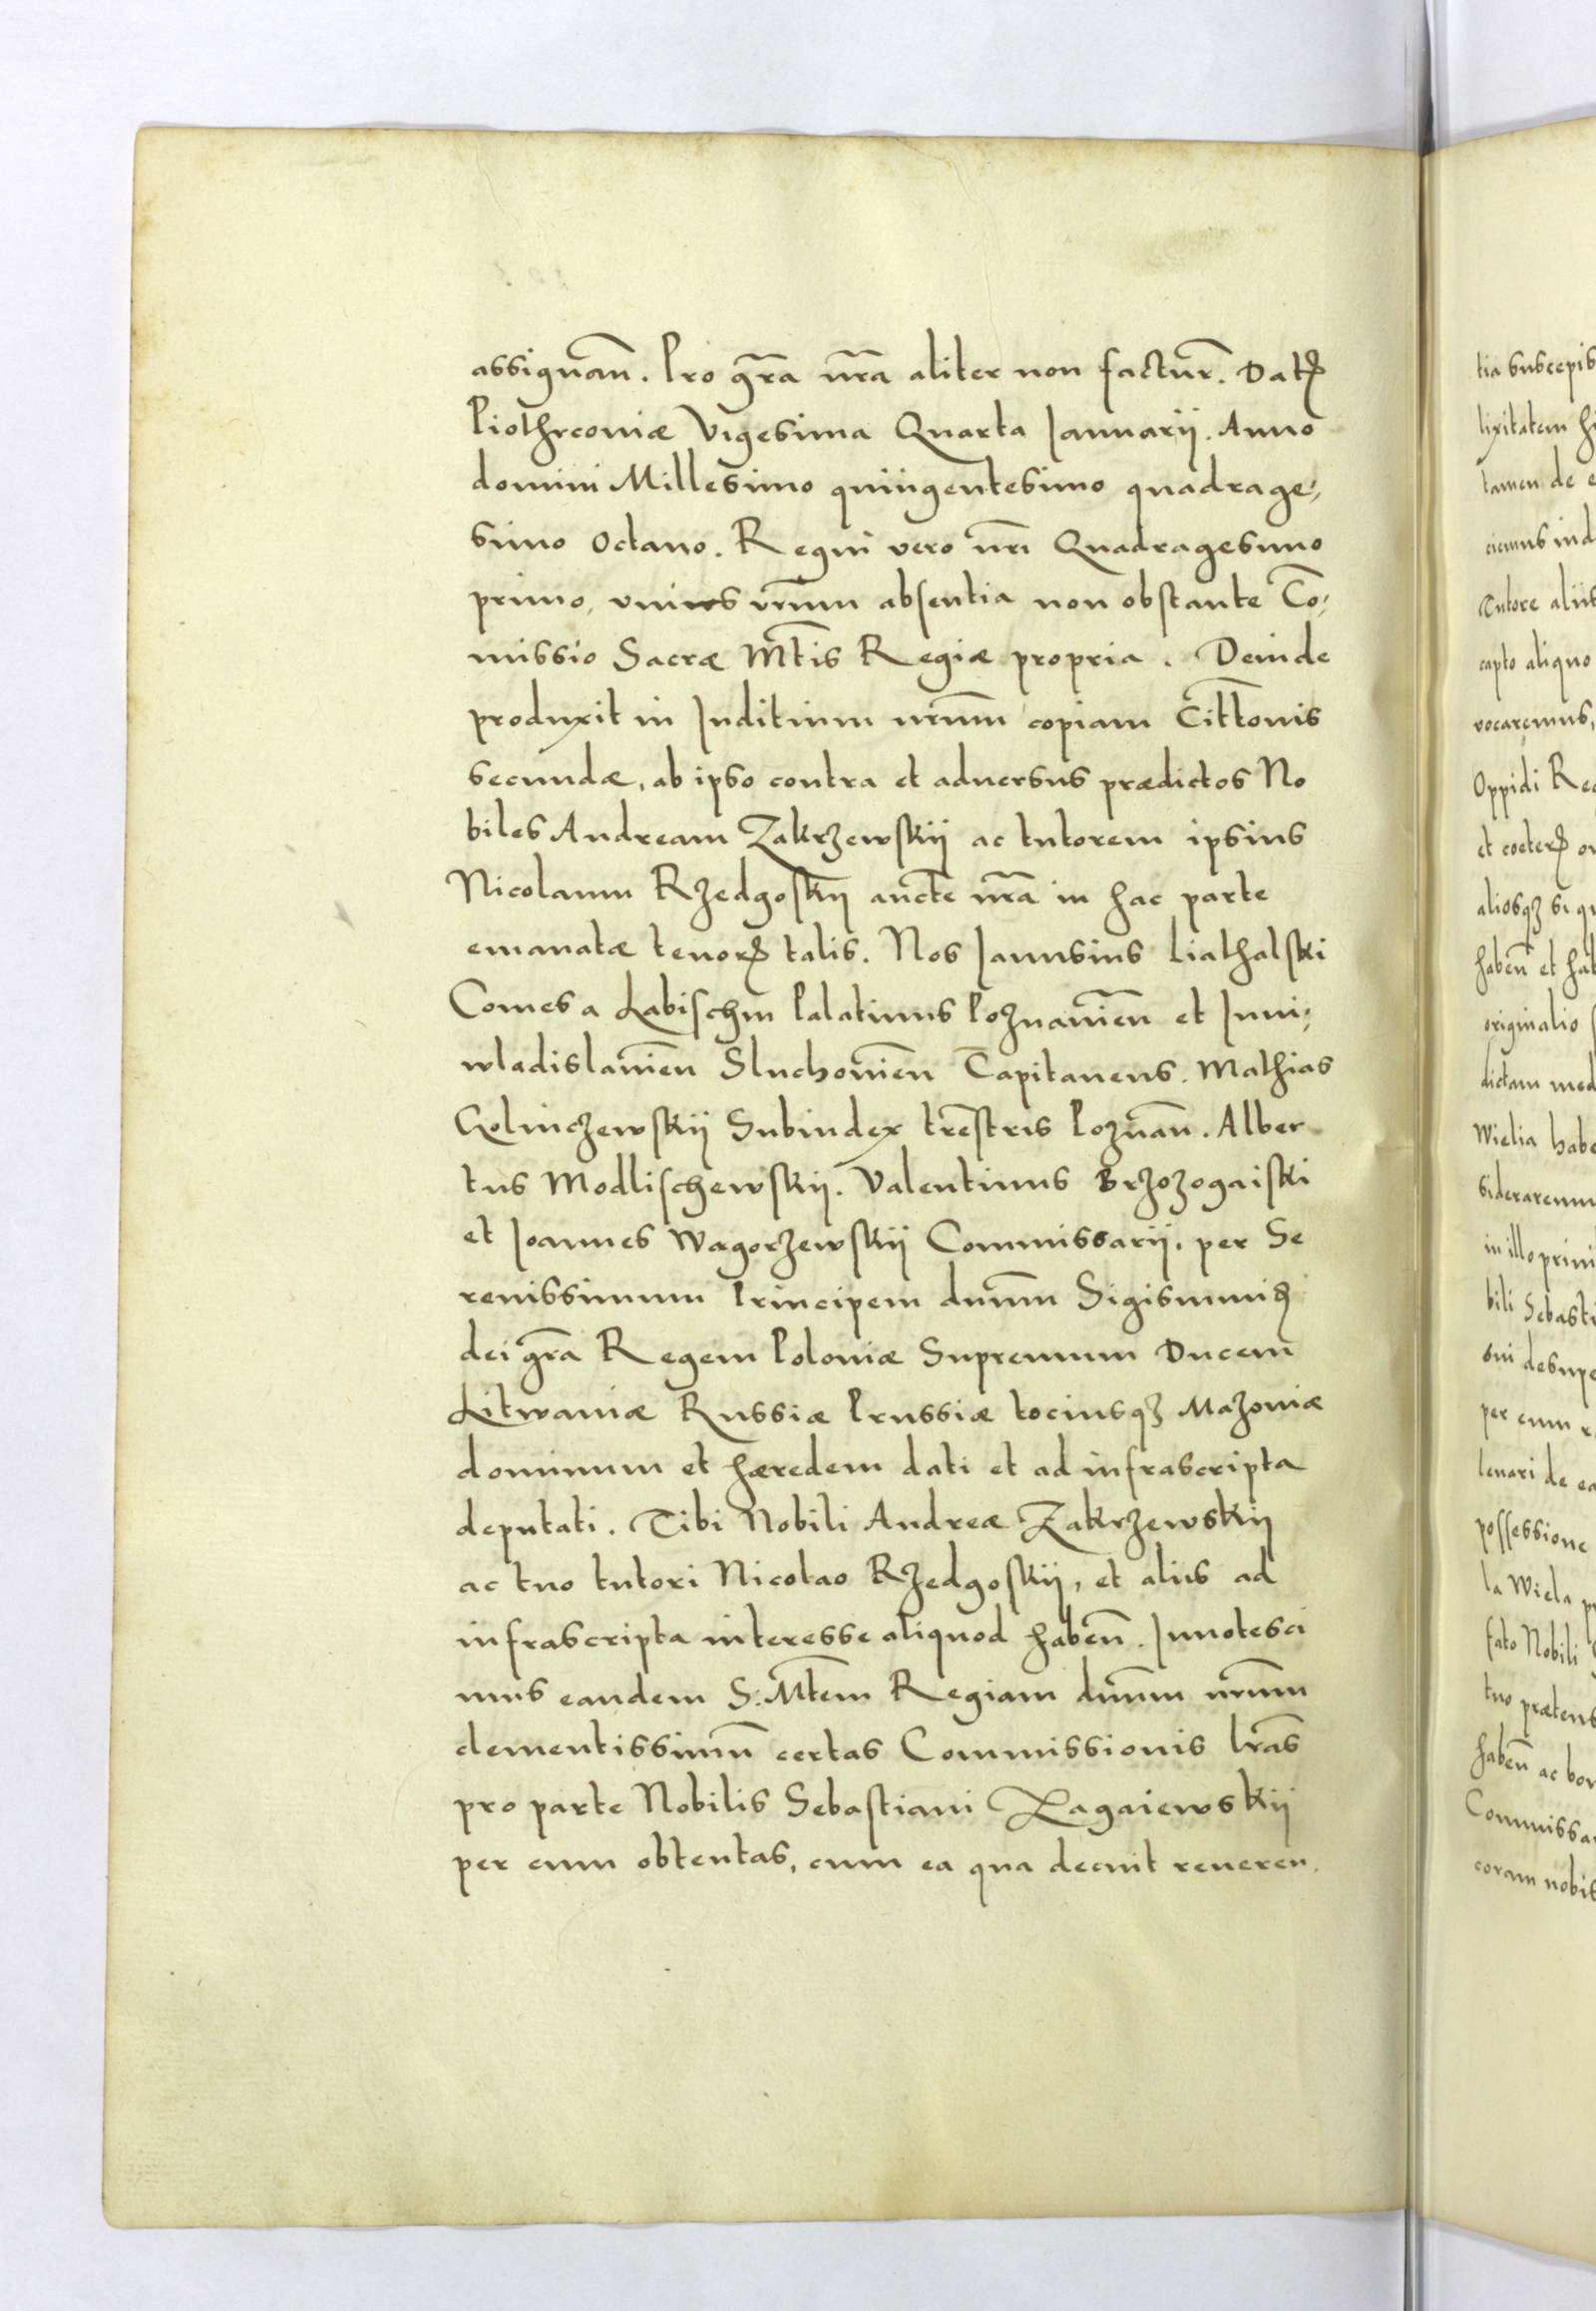 assignañ. Pro gr̃a nr̃a aliter non factur̃. Datꝭ
Piothrconiæ Vigesima Quarta Januarij. Anno
domini Millesimo quingentesimo quadrage⸗
simo Octauo. Regni vero nr̃i Quadragesimo
primo, vnius vr̃um absentia non obstante Co⸗
missio Sacræ Mt̃is Regiæ propria. Deinde
produxit in Juditium nr̃um copiam Citt̃onis
secundæ, ab ipso contra et aduersus prædictos No
biles Andream Zakrzewskij ac tutorem ipsius
Nicolaum Rzedgoskij aucte nr̃a in hac parte
emanatæ tenorꝭ talis. Nos Janusius Liathalski
Comes a Labischin Palatinus Poznanieñ et Juni⸗
wladislauieñ Sluchouieñ Capitaneus. Mathias
Golinczewskij Subiudex tr̃estris Poznañ. Alber
tus Modlischewskij. Valentinus Brzozogaiski
et Joannes Wagorzewskij Commissarij, per Se
renissimum Principem dñum Sigismundꝭ
dei gr̃a Regem Poloniæ Supremum Ducem
Litwaniæ Russiæ Prussiæ tociusqꝫ Mazouiæ
dominum et hæredem dati et ad infrascripta
deputati. Tibi Nobili Andreæ Zakrzewskij
ac tuo tutori Nicolao Rzedgoskij, et aliis ad
infrascripta interesse aliquod habeñ. Innotesci
mus eandem S. Mt̃em Regiam dñum nr̃um
clementissimũ certas Commissionis lr̃as
pro parte Nobilis Sebastiani Zagaiewskij
per eum obtentas, cum ea qua decuit reueren
tia suscepis
lixitatem
tamen de
ciemus ind
Tutore aliis
capto aliquo
vocaremus,
Oppidi Re
et coeterꝭ
aliosqꝫ si
habeñ et
originalio
dictam med
Wielia habe
siderarem
in illo primi
bili Sebasti
oni desupe
per eum
leuari de ea
possessione
la Wiela
fato Nobili
tuo prætens
habeñ ac bo
Commissa
coram nobis